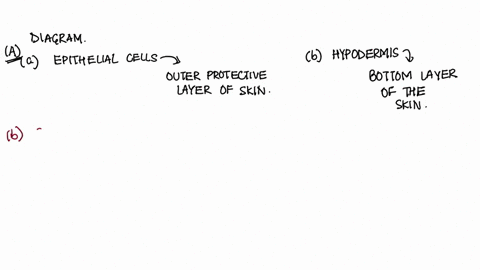 DIAGRAM.
(A)
(a) EPITHELIAL CELLS
OUTER PROTECTIVE
LAYER OF SKIN.
(b) HYPODERMIS
BOTTOM LAYER
OF THE
SKIN.
(b)